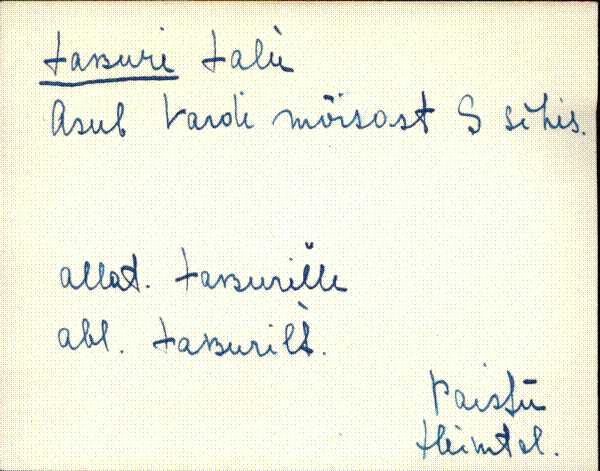 taʙuri talu
Asub Vardi mõisast S sihis.
allat. taʙurille
abl. taʙurilt.
Paistu
Heimtal.